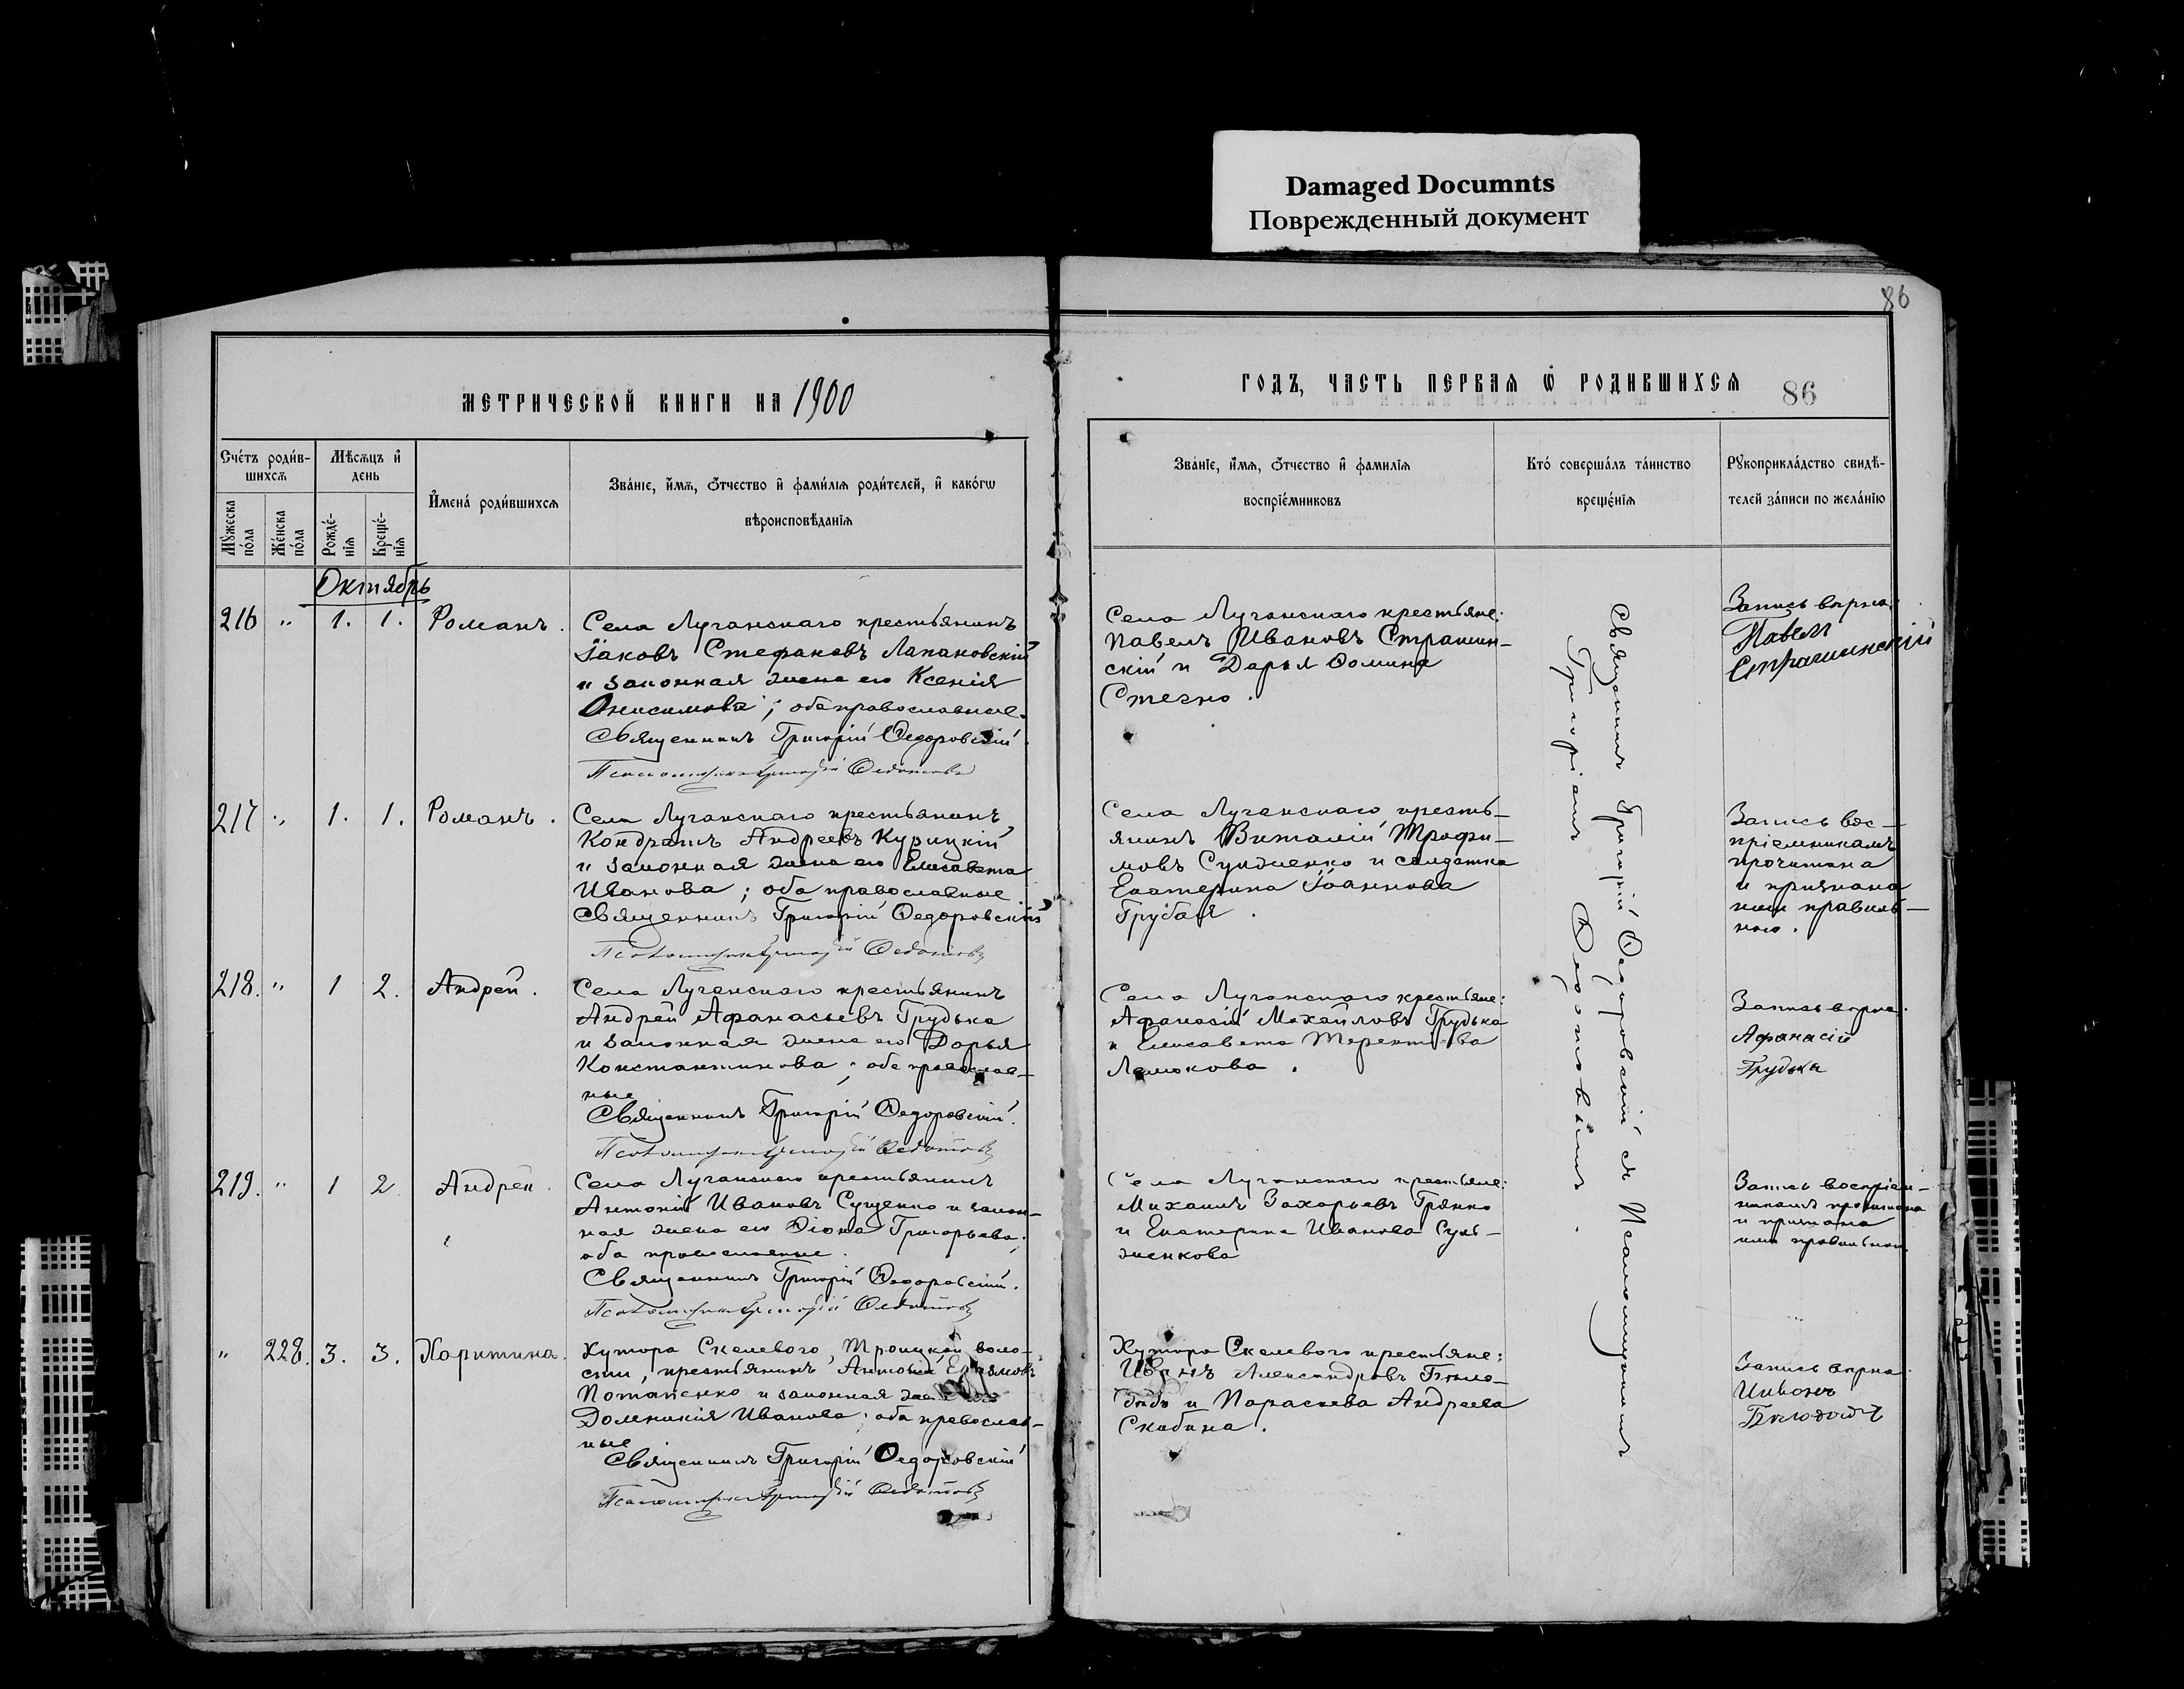 Damaged Documnts
Поврежденный документ
86
МЕТРИЧЕСКОЙ КНИГИ НА 1900
ГОДЪ, ЧАСТЬ ПЕРВАѦ Ѿ РОДИВШИХСѦ 86
Счéтъ роди́в-
шихсѧ
Мѣ́сѧцъ и҆
день
Мꙋ́жеска
по́ла
Же́нска
по́ла
Рожде́-
нїѧ
Креще́-
нїѧ
И҆мена̀ роди́вшихсѧ
Зва́нїе, и҆́мѧ, ѻ҆́тчество и҆ фами́лїѧ роди́телей, и҆ како́гѡ
вѣроисповѣ́данїѧ
Зва́нїе, и҆́мѧ, ѻ҆́тчество и҆ фами́лїѧ
воспрїе́мниковъ
Кто̀ соверша́лъ та́инство
креще́нїѧ
Рꙋкоприкла́дство свидѣ́-
телей за́писи по жела́нїю
Октябрь
216 " 1. 1. Романъ.
Села Луганскаго крестьянинъ
Іаковъ Стефановъ Лапановскій
и законная жена его Ксенія
Онисимова; оба православные.
Священникъ Григорій Ѳедоровскій
Псаломщикъ Григорій Ѳедотовъ
Села Луганскаго крестьяне:
Павелъ Ивановъ Страшин-
скій и Дарья Фомина
Стегно.
Запись вѣрна:
Павелъ
Страшинскій
217 " 1. 1. Романъ.
Села Луганскаго крестьянинъ
Кондратъ Андреевъ Курицкій
и законная жена его Елисавета
Иванова; оба православные.
Священникъ Григорій Ѳедоровскій
Псаломщикъ Григорій Ѳедотовъ
Села Луганскаго кресть-
янинъ Виталій Трофи-
мовъ Сулженко и солдатка
Екатерина Іоаннова
Грубая.
Запись вос-
пріемникамъ
прочитана
и признана
ими правиль-
ною.
218. " 1 2. Андрей.
Села Луганскаго крестьянинъ
Андрей Аѳанасьевъ Грудька
и законная жена его Дарья
Константинова; оба православ-
ные
Священникъ Григорій Ѳедоровскій.
Псаломщикъ Григорій Ѳедотовъ
Села Луганскаго крестьяне:
Аѳанасій Михайловъ Грудька
и Елисавета Терентьева
Запись вѣрна.
Аѳанасій
Грудька
219. " 1 2 Андрей.
Села Луганскаго крестьянинъ
Антоній Ивановъ Сущенко и закон-
ная жена его Ѳіона Григорьева;
оба православные.
Священникъ Григорій Ѳедоровскій.
Псаломщикъ Григорій Ѳедотовъ
Села Луганскаго крестьяне:
Михаилъ Захарьевъ Грянко
и Екатерина Иванова Суль-
женкова
Запись воспріем-
никамъ прочитана
и признана
ими правильной.
" 228. 3. 3. Харитина.
Хутора Скелевого, Троицкой воло-
сти, крестьянинъ Антоній
Потапенко и законная жена его
Домникія Иванова; оба православ-
ные
Священникъ Григорій Ѳедоровскій
Псаломщикъ Григорій Ѳедотовъ
Хутора Скелевого крестьяне:
Иванъ Александровъ Бѣло-
дѣдъ и Параскева Андреева
Скибина.
Запись вѣрна.
Священникъ Григорій Ѳедоровскій съ Псаломщикомъ
Григоріемъ Ѳедотовымъ.